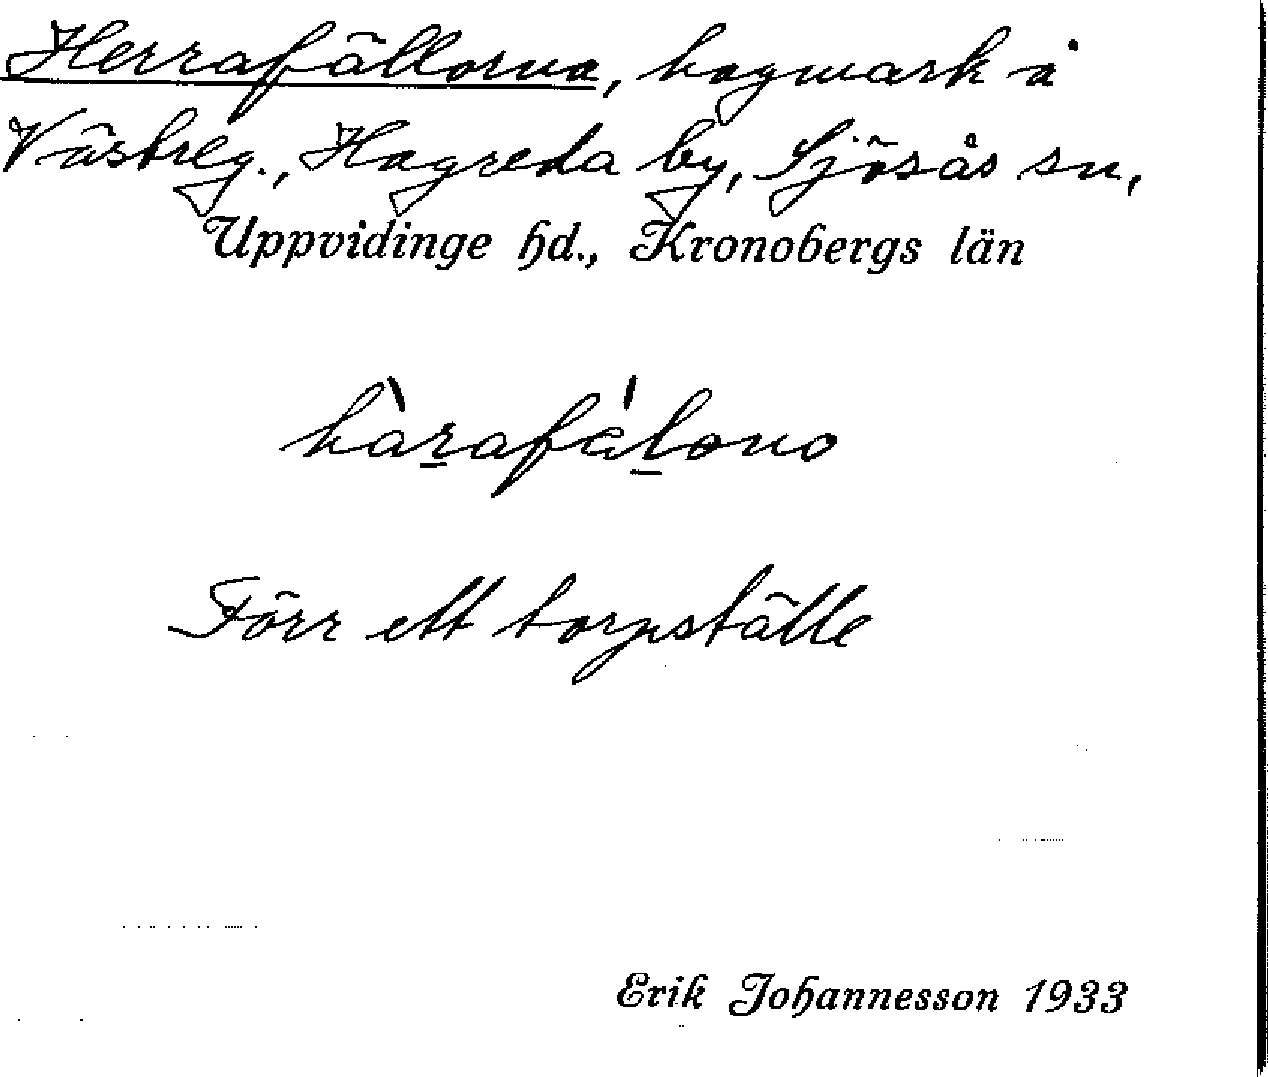 Herrafällorna, hagmark å
Västreg., Hagreda by, Sjösås sn,
Uppvidinge hd., Kronobergs län
hàrafálono
Förr ett torpställe
Erik Johannesson 1933